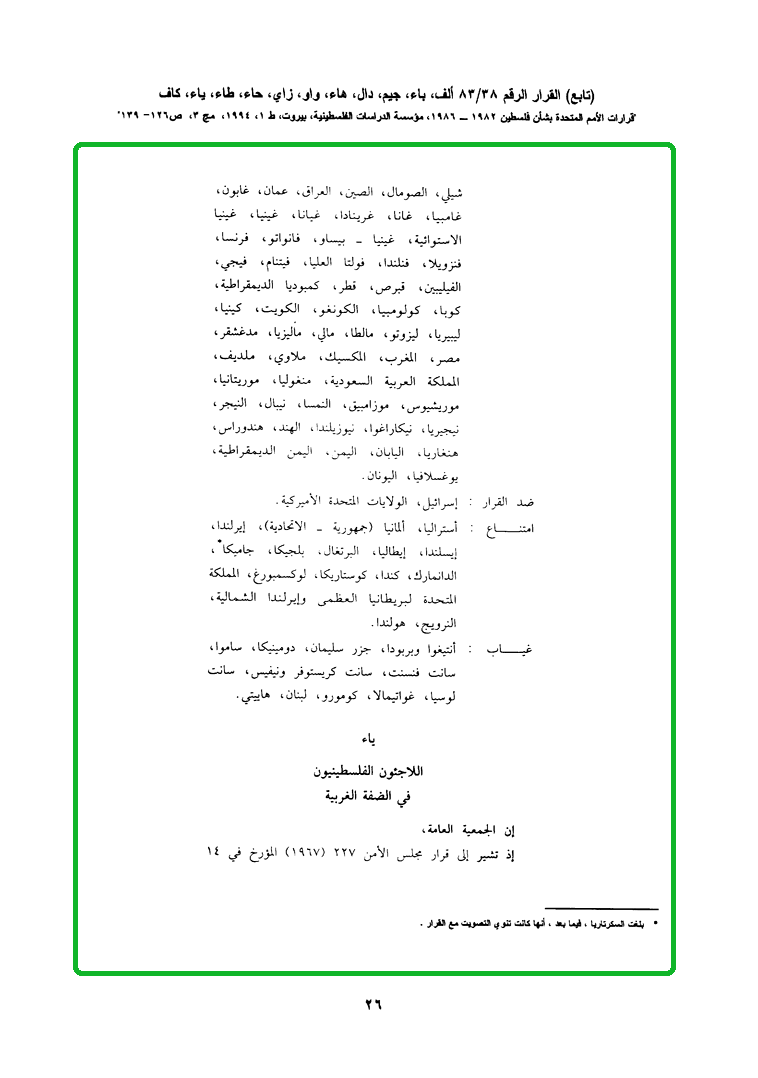 (تابع) القرار الرقم ٨٣/٣٨ ألف، باء، جيم، دال، هاء، واو، زاي، حاء، طاء، ياء، كاف
"قرارات الأمم المتحدة بشأن فلسطين ١٩٨٢ ــ ١٩٨٦، مؤسسة الدراسات الفلسطينية، بيروت، ط ١، ١٩٩٤، مج ٣، ص١٢٦- ١٣٩"
شيلي، الصومال، الصين، العراق، عمان، غابون،
غامبيا، غانا، غرينادا، غيانا، غينيا، غينيا
الاستوائية، غينيا ـ بيساو، فانواتو، فرنسا،
فنزويلا، فنلندا، فولتا العليا، فيتنام، فيجي،
الفيليبين، قبرص، قطر، كمبوديا الديمقراطية،
كوبا، كولومبيا، الكونغو، الكويت، كينيا،
ليبيريا، ليزوتو، مالطا، مالي، مأليزيا، مدغشقر،
مصر، المغرب، المكسيك، ملاوي، ملديف،
المملكة العربية السعودية، منغوليا، موريتانيا،
موريشيوس، موزامبيق، النمسا، نيبال، النيجر،
نيجيريا، نيكاراغوا، نيوزيلندا، الهند، هندوراس،
هنغاريا، اليابان، اليمن، اليمن الديمقراطية،
يوغسلافيا، اليونان.
ضد القرار : إسرائيل، الولايات المتحدة الأميركية.
امتنـــــاع : أستراليا، ألمانيا (جمهورية ـ الاتحادية)، إيرلندا،
إيسلندا، إيطاليا، البرتغال، بلجيكا، جاميكا*،
الدانمارك، كندا، كوستاريكا، لوكسمبورغ، المملكة
المتحدة لبريطانيا العظمى وإيرلندا الشمالية،
النرويج، هولندا.
غيـــــاب : أنتيغوا وبربودا، جزر سليمان، دومينيكا، ساموا،
سانت فنسنت، سانت كريستوفر ونيفيس، سانت
لوسيا، غواتيمالا، كومورو، لبنان، هاييتي.
ياء
اللاجئون الفلسطينيون
في الضفة الغربية
إن الجمعية العامة،
إذ تشير إلى قرار مجلس الأمن ٢٢٧ (١٩٦٧) المؤرخ في ١٤
* بلغت السكرتاريا ، فيما بعد ، أنها كانت تنوي التصويت مع القرار .
٢٦